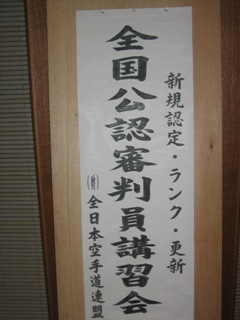 新規認定・ランク・更新
全国公認審判員講習会
(財)全日本空手道連盟